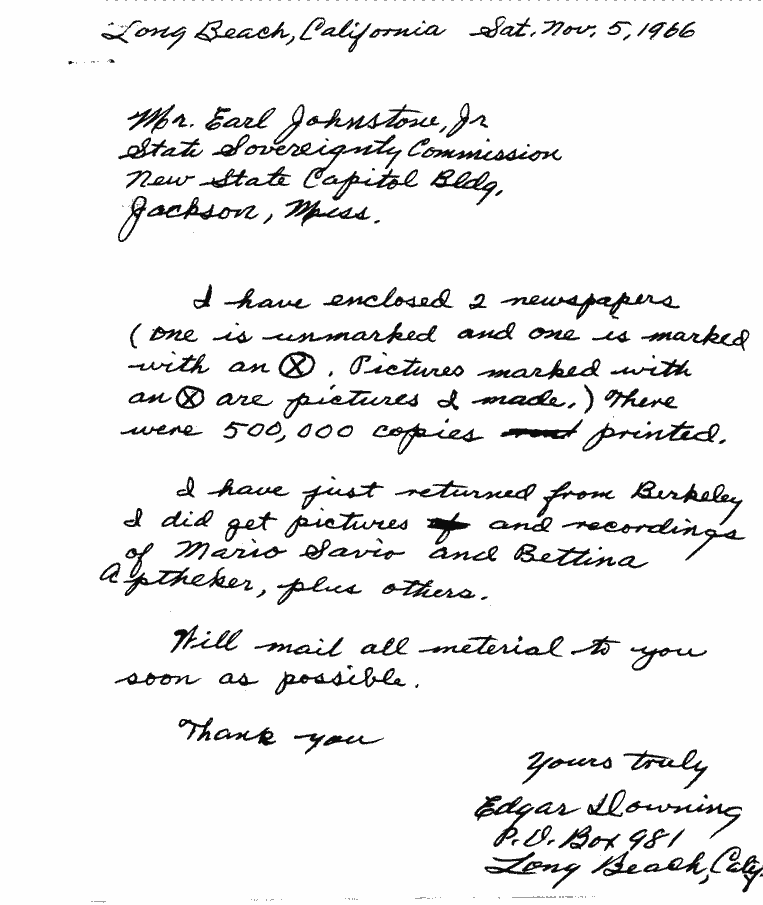 Long Beach, California Sat. Nov. 5, 1966
Mr. Earl Johnstone, Jr
State Sovereignty Commission
New State Capitol Bldg,
Jackson, Miss.
I have enclosed 2 newspapers
(one is unmarked and one is marked
with an Ⓧ. Pictures marked with
an Ⓧ are pictures I made.) There
were 500,000 copies printed.
I have just returned from Berkeley
I did get pictures and recordings
of Mario Savio and Bettina
Aptheker, plus others.
Will mail all meterial to you
soon as possible.
Thank you
Yours truly
Edgar Downing
P.O. Box 981
Long Beach, Calif.